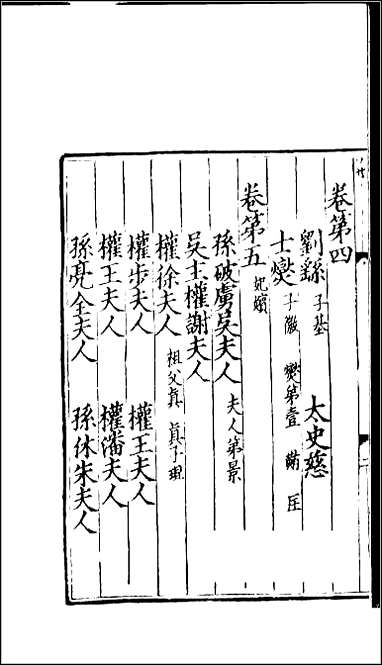 卷第四
劉繇 子基 太史慈
士燮 子徽 燮第壹 䵋 匡
卷第五 妃嬪
孫破虜吳夫人 夫人第景
吳主權謝夫人
權徐夫人 祖父真 真子琨
權步夫人 權王夫人
權王夫人 權潘夫人
孫亮全夫人 孫休朱夫人